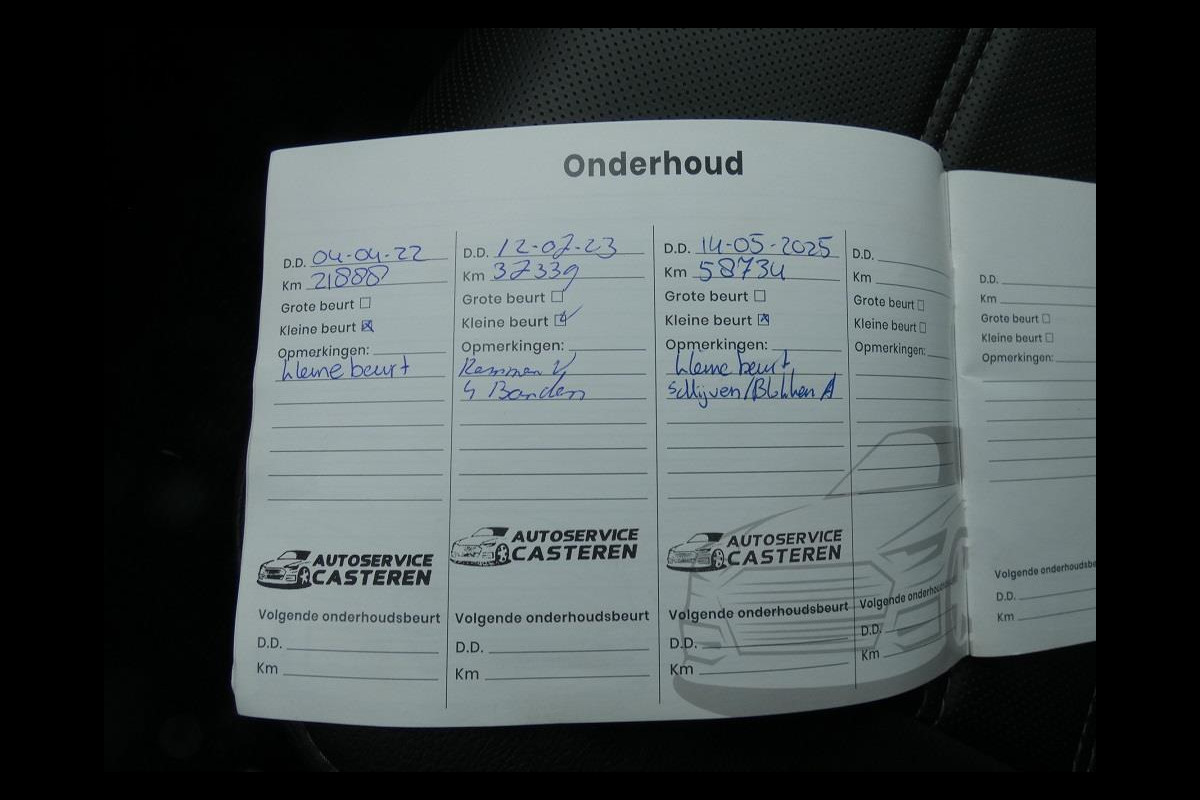 Onderhoud
D.D. 04-04-22
Km 21888
Grote beurt
Kleine beurt
Opmerkingen:
kleine beurt
AUTOSERVICE
CASTEREN
Volgende onderhoudsbeurt
D.D.
Km
D.D. 12-07-23
Km 37339
Grote beurt
Kleine beurt
Opmerkingen:
Remmen V
4 Banden
AUTOSERVICE
CASTEREN
Volgende onderhoudsbeurt
D.D.
Km
D.D. 14-05-2025
Km 58734
Grote beurt
Kleine beurt
Opmerkingen:
kleine beurt,
schijven/Blokken A
AUTOSERVICE
CASTEREN
Volgende onderhoudsbeurt
D.D.
Km
D.D.
Km
Grote beurt
Kleine beurt
Opmerkingen:
Volgende
D.D.
Km
D.D.
Km
Grote beurt
Kleine beurt
Opmerkingen:
Volgende
D.D.
Km